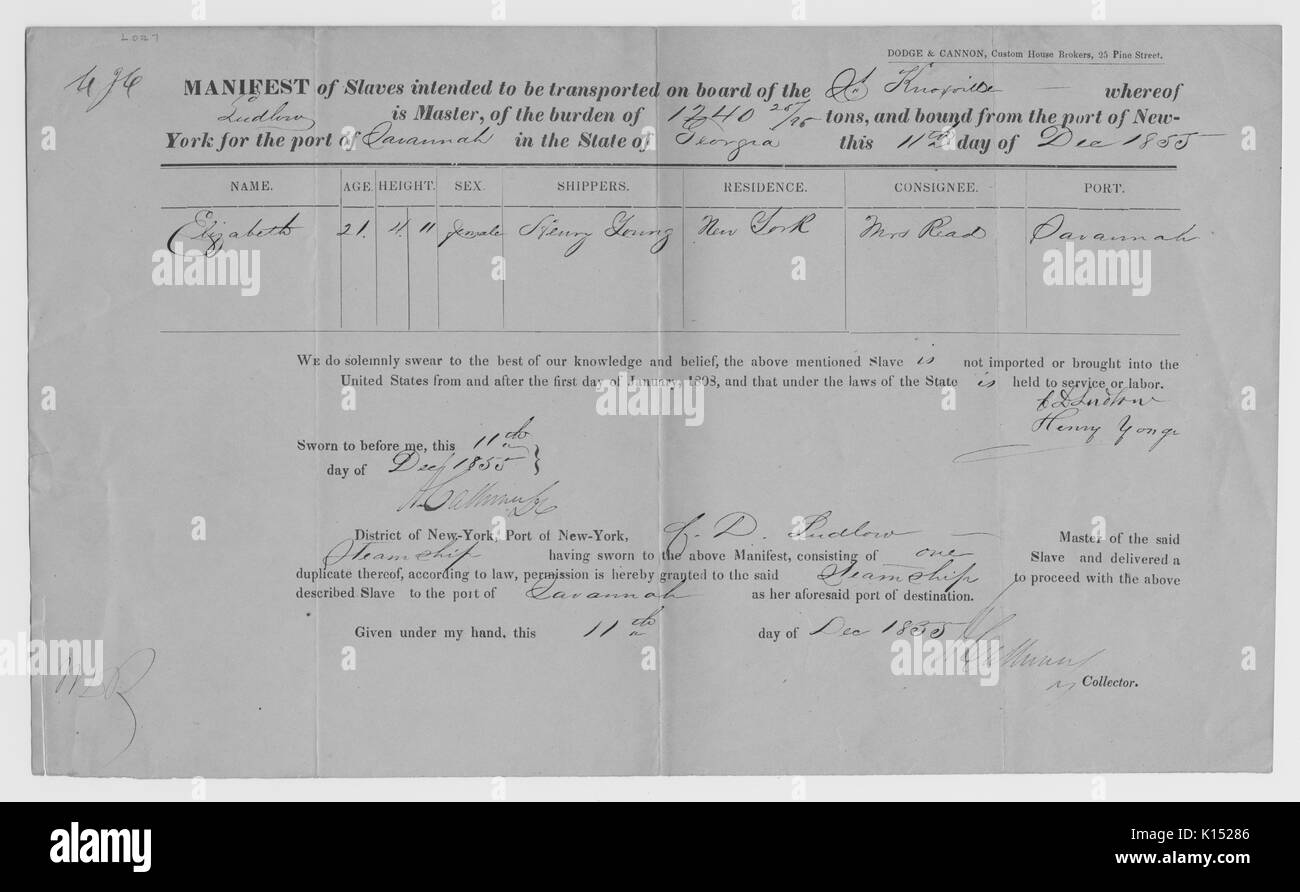 L027
DODGE & CANNON, Custom House Brokers, 25 Pine Street.
MANIFEST of Slaves intended to be transported on board of the St Knoxville — whereof
Ludlow is Master, of the burden of 1240 tons, and bound from the port of New-
York for the port of Savannah in the State of Georgia this 11th day of Dec 1855
NAME. AGE. HEIGHT. SEX. SHIPPERS. RESIDENCE. CONSIGNEE. PORT.
Elizabeth 21. 4. 11 female Henry Young New York Mrs Read Savannah
WE do solemnly swear to the best of our knowledge and belief, the above mentioned Slave is not imported or brought into the
United States from and after the first day of January, 1808, and that under the laws of the State is held to service or labor.
C D Ludlow
Henry Yonge
Sworn to before me, this 11th
day of Dec 1855 }
District of New-York, Port of New-York, C. D. Ludlow — Master of the said
Steam ship having sworn to the above Manifest, consisting of one Slave and delivered a
duplicate thereof, according to law, permission is hereby granted to the said Steam ship to proceed with the above
described Slave to the port of Savannah as her aforesaid port of destination.
Given under my hand, this 11th day of Dec 1855
Collector.
alamy stock photo
K15286
www.alamy.com